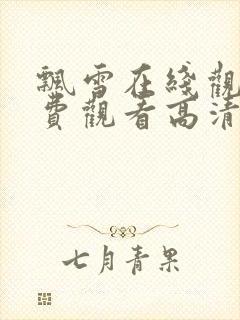 飄雪在綫觀
費觀看高清
七月青果